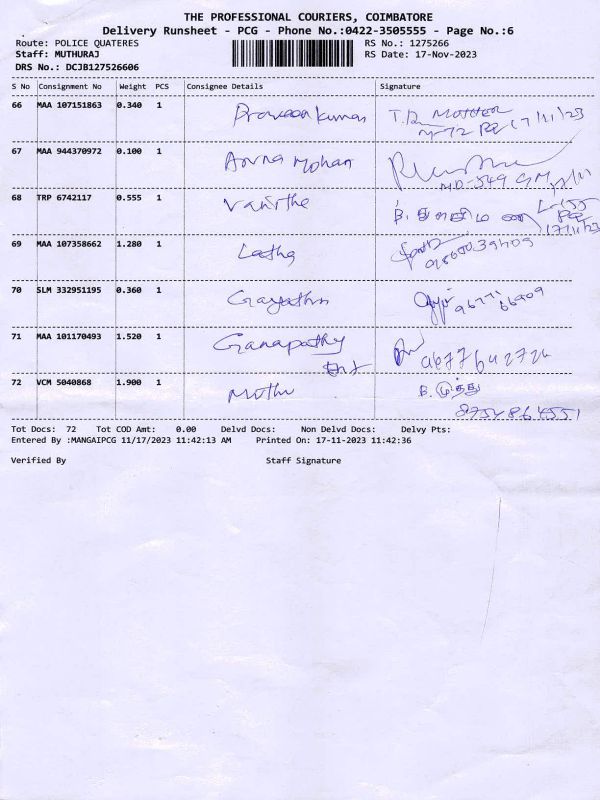 THE PROFESSIONAL COURIERS, COIMBATORE
Delivery Runsheet - PCG - Phone No.:0422-3505555 - Page No.:6
Route: POLICE QUATERES RS No.: 1275266
Staff: MUTHURAJ RS Date: 17-Nov-2023
DRS No.: DCJB127526606
S No Consignment No Weight PCS Consignee Details Signature
66 MAA 107151863 0.340 1 Praveen kumar 17/11/23
67 MAA 944370972 0.100 1 Anna Mohan
68 TRP 6742117 0.555 1 Vanithe
17/11/23
69 MAA 107358662 1.280 1 Latha
70 SLM 332951195 0.360 1 Gayathri
71 MAA 101170493 1.520 1 Ganapathy 9677642724
72 VCM 5040868 1.900 1 Muthu முத்து
8754864551
Tot Docs: 72 Tot COD Amt: 0.00 Delvd Docs: Non Delvd Docs: Delvy Pts:
Entered By :MANGAIPCG 11/17/2023 11:42:13 AM Printed On: 17-11-2023 11:42:36
Verified By Staff Signature